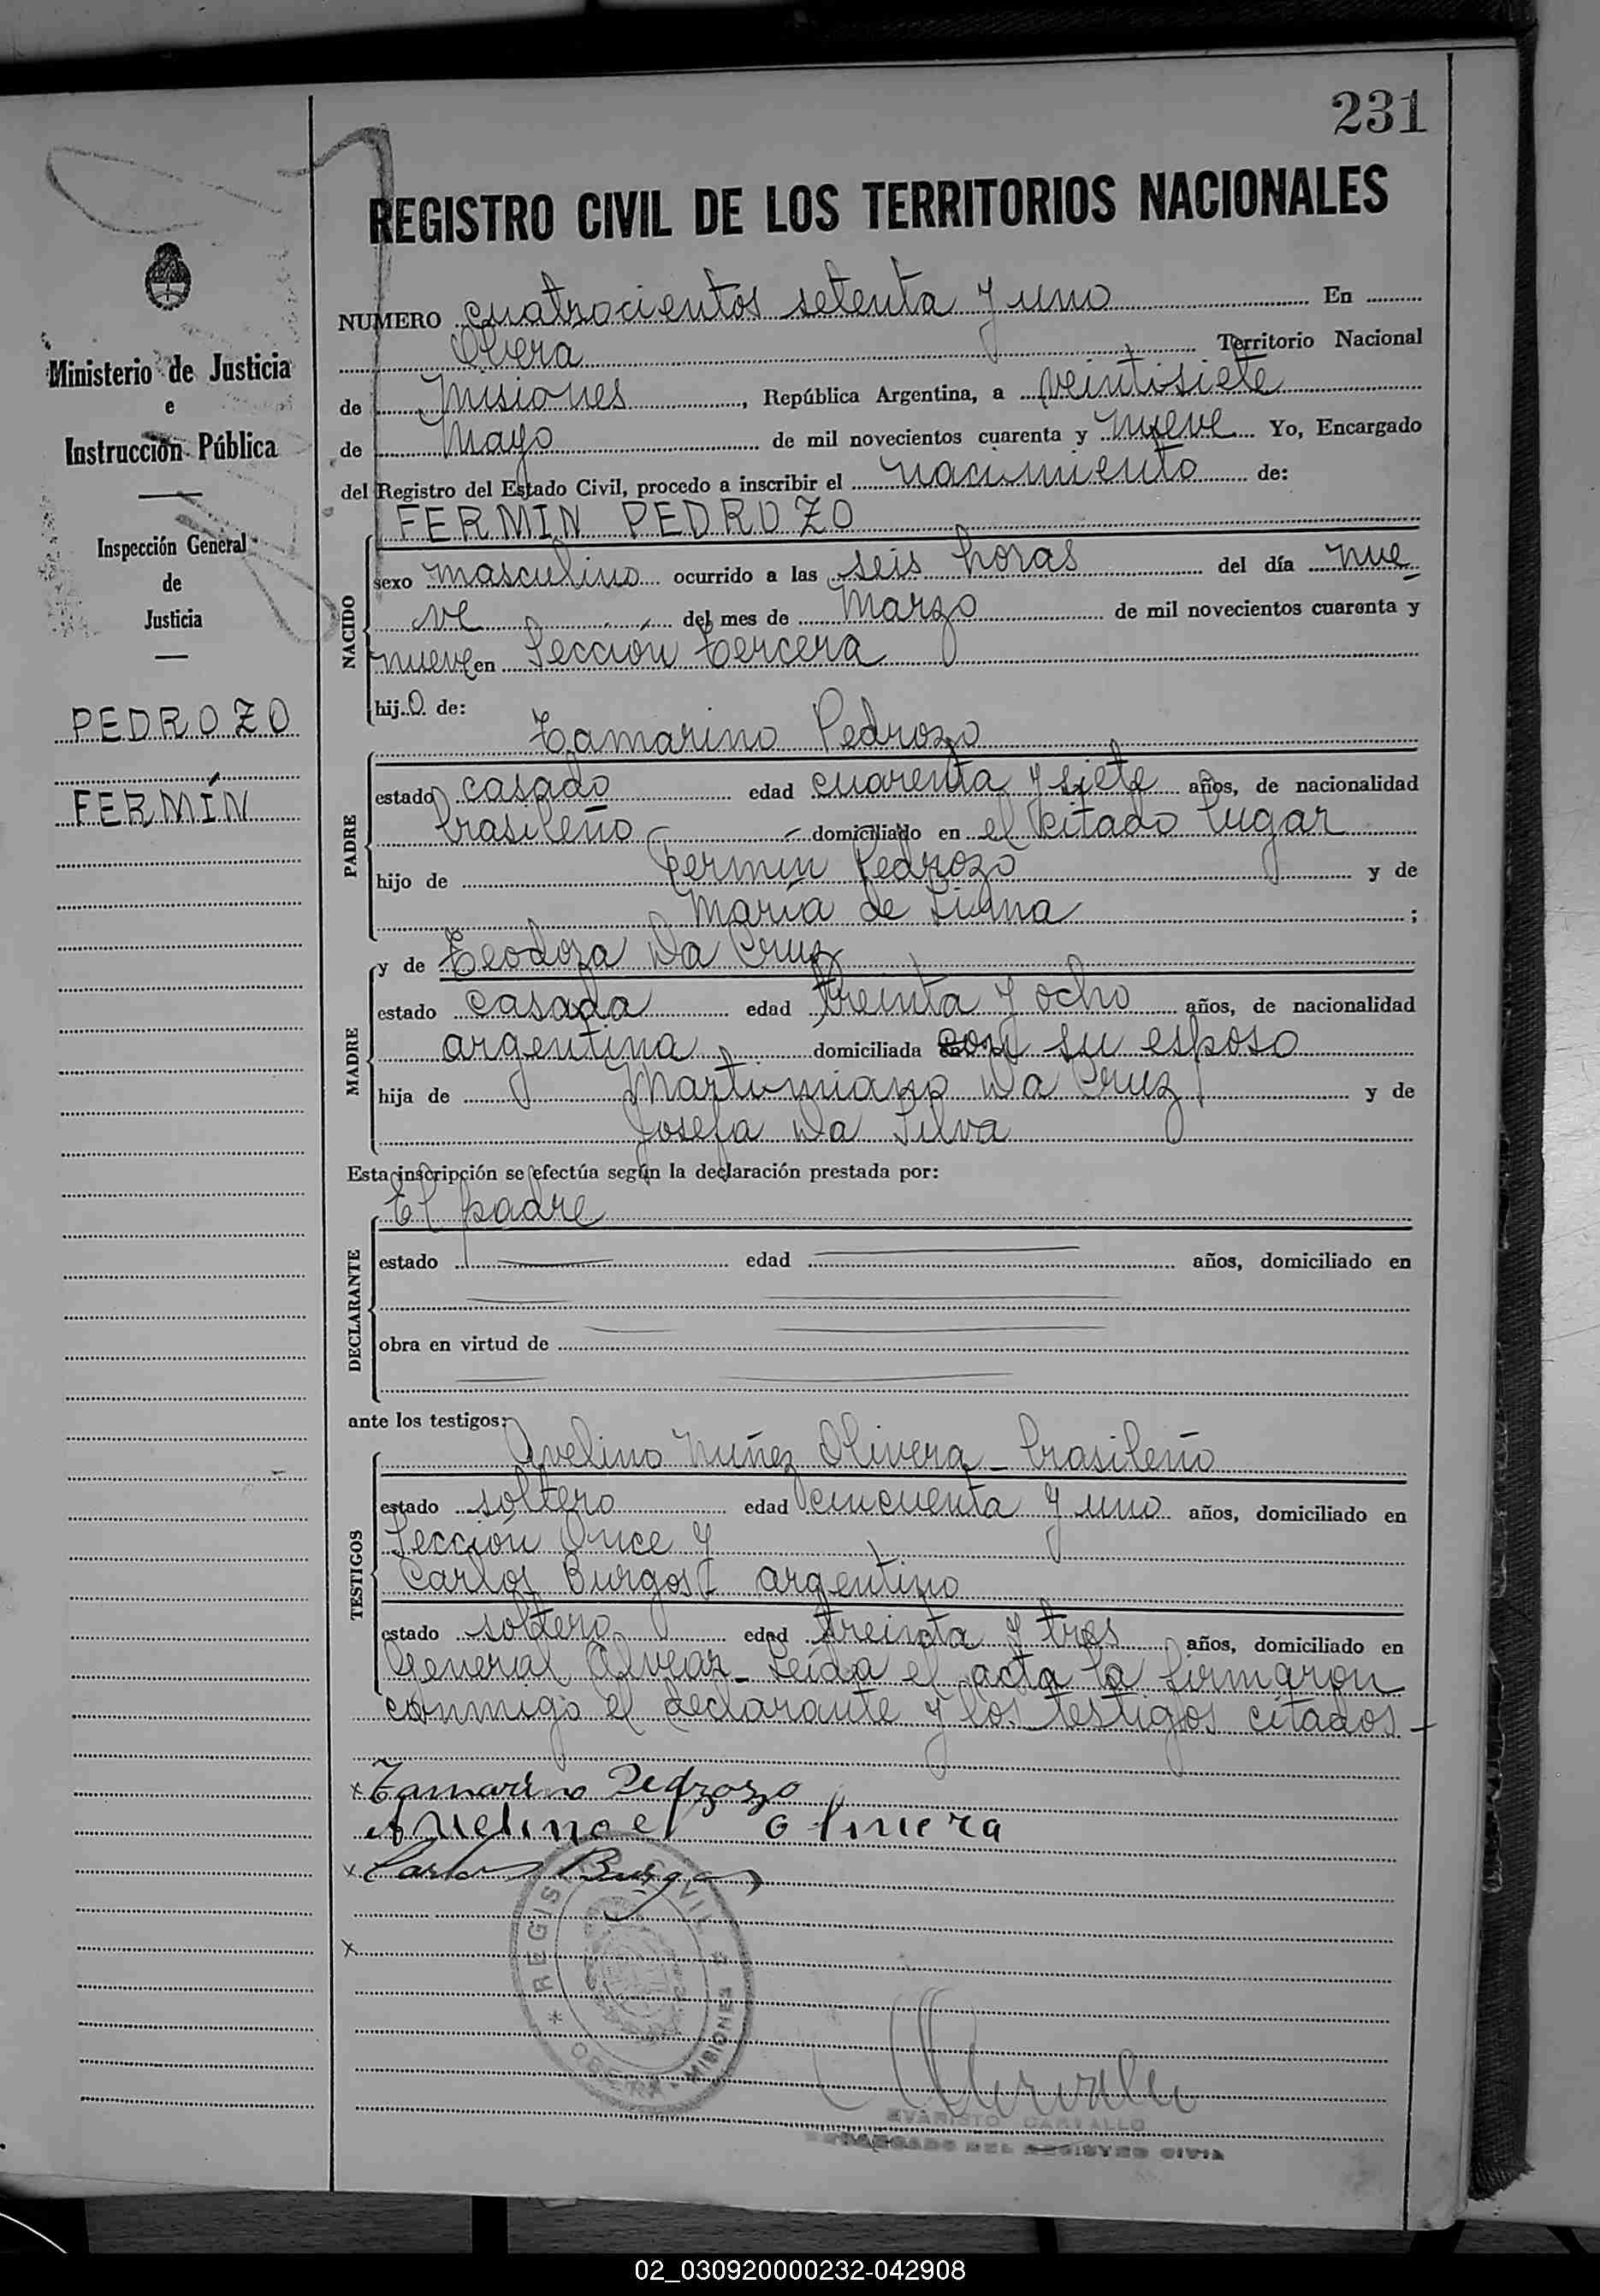 231
REGISTRO CIVIL DE LOS TERRITORIOS NACIONALES
NUMERO cuatrocientos setenta y uno En
Obera Territorio Nacional
de Misiones, República Argentina, a veintisiete
de Mayo de mil novecientos cuarenta y nueve Yo, Encargado
del Registro del Estado Civil, procedo a inscribir el nacimiento de:
FERMIN PEDROZO
NACIDO
sexo masculino ocurrido a las seis horas del día nue
ve del mes de Marzo de mil novecientos cuarenta y
nueve en Sección tercera
hijo de:
Tamarino Pedrozo
PADRE
estado casado edad cuarenta y siete años, de nacionalidad
brasileño domiciliado en el citado lugar
hijo de Fermin Pedrozo y de
María de ;
y de Teodoza Da Cruz
MADRE
estado casada edad treinta y ocho años, de nacionalidad
argentina domiciliada con su esposo
hija de Martimiano Da Cruz y de
Josefa Da Silva
Esta inscripción se efectúa según la declaración prestada por:
El padre
DECLARANTE
estado edad años, domiciliado en
obra en virtud de
ante los testigos:
Avelino Nuñez Olivera - brasileño
TESTIGOS
estado soltero edad cincuenta y uno años, domiciliado en
Sección Once y
Carlos Burgos - argentino
estado soltero edad treinta y tres años, domiciliado en
General Alvear - Leída el acta la firmaron
conmigo el declarante y los testigos citados -
x Tamarino Pedrozo
olivera
x Carlos Burgos
x
* REGISTRO CIVIL *
OBERA - MISIONES
EVARISTO CARVALLO
ENCARGADO DEL REGISTRO CIVIL
Ministerio de Justicia
e
Instrucción Pública
Inspección General
de
Justicia
PEDROZO
FERMÍN
02_030920000232-042908